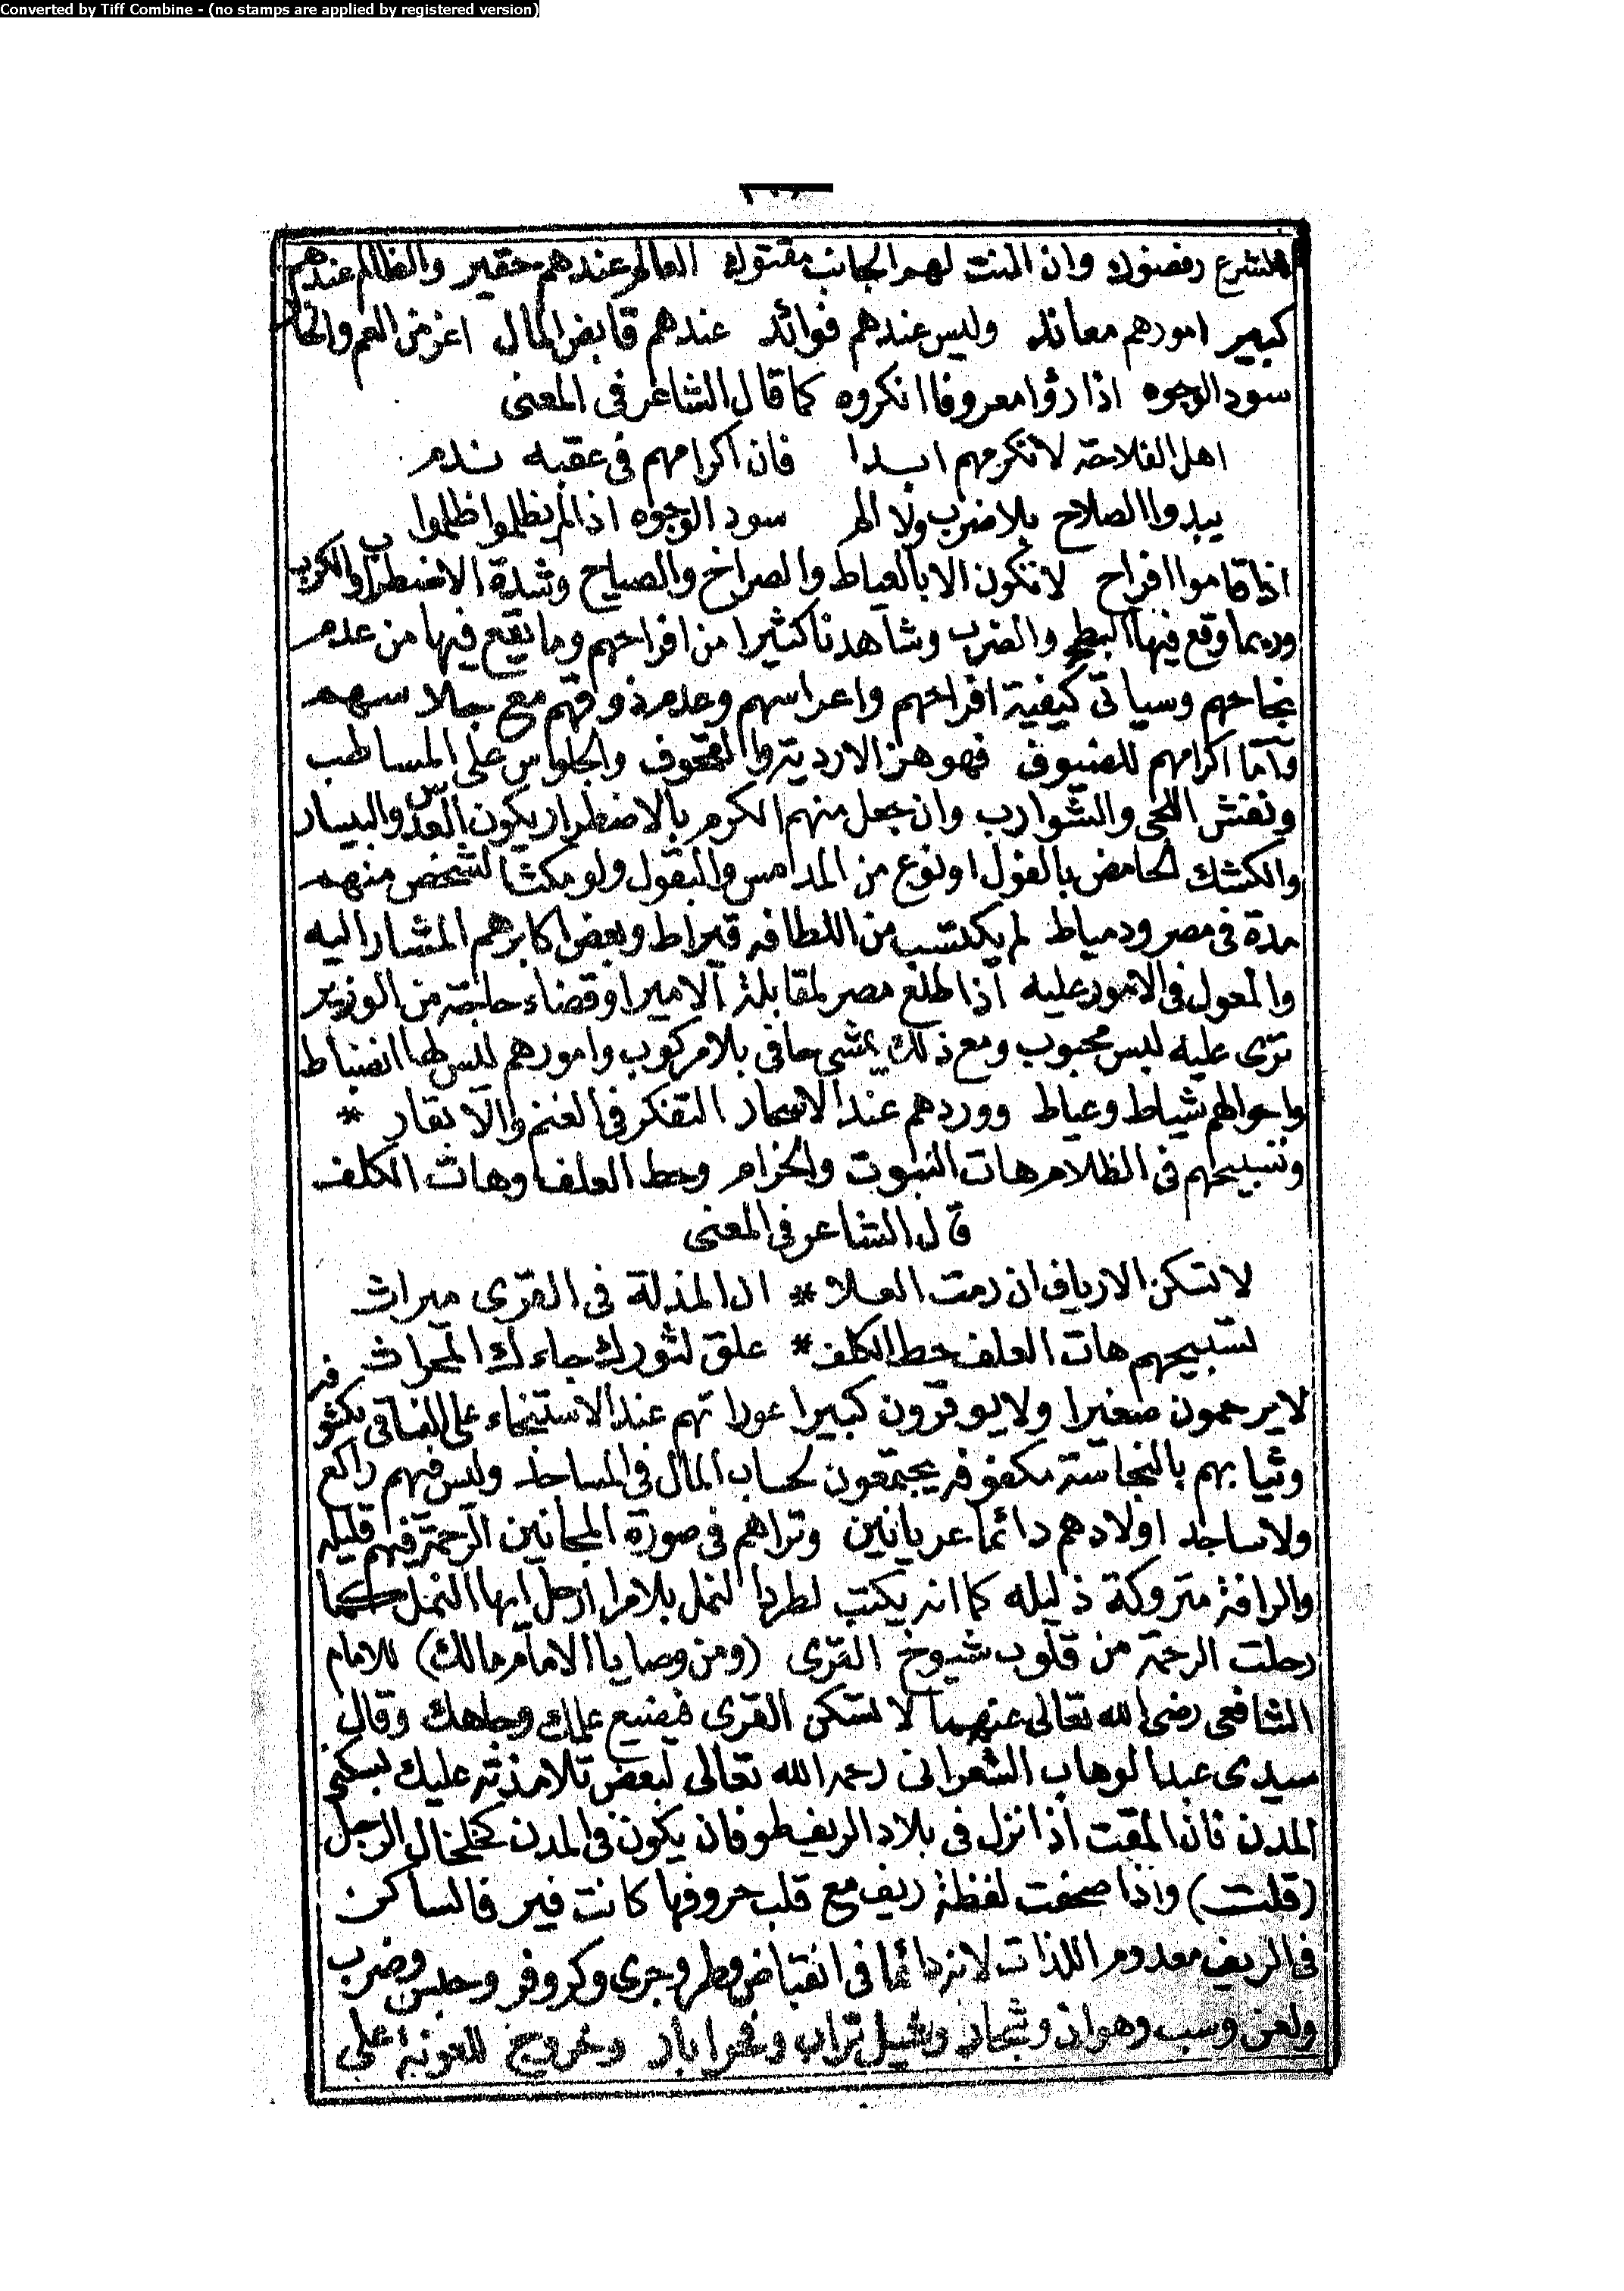 Converted by Tiff Combine - (no stamps are applied by registered version)
للشرع رفضوك وان المنت لهم الجانب مقتوك العالم عندهم حقير والظالم عندهم
كبير امورهم معانده وليس عندهم فوائد عندهم قابض المال اعز من العم والخال
سود الوجوه اذا رؤا معروفا انكروه كما قال الشاعر فى المعنى
اهل الفلاحة لا تكرمهم ابدا فان اكرامهم فى عقبه ندم
يبدوا الصلاح بلا ضرب ولا الم سود الوجوه اذا لم يظلموا ظلموا
اذا قاموا افراح لا تكون الا بالعياط والصراخ والصياح وشدة الاضطراب والكرب
وربما وقع فيها البطح والضرب وشاهدنا كثيرا من افراحهم وما يقع فيها من عدم
نجاحهم وسياتى كيفية افراحهم واعراسهم وعدم ذوقهم مع جلاسهم
وآمّا اكرامهم للضيوف فهو هز الاردية والقحوف والجلوس على المساطب
ونفش اللحى والشوارب وان جعل منهم الكرم بالاضطرار يكون العدس والبيسار
والكشك الحامض بالفول او نوع من المدامس والبقول ولو مكث الشخص منهم
مدة فى مصر ودمياط لم يكتسب من اللطافه قيراط وبعض اكابرهم المشار اليه
والمعول فى الامور عليه اذا طلع مصر لمقابلة الامير او قضاء حاجة من الوزير
ترى عليه لبس محبوب ومع ذلك يمشى حافى بلا مركوب وامورهم ليس لها انضباط
واحوالهم شياط وعياط ووردهم عند الاسحار التفكر فى الغنم والابقار *
وتسبيحهم فى الظلام هات النبوت والحزام وحط العلف وهات الكلف
قال الشاعر فى المعنى
لا تسكن الارياف ان رمت العلا * ان المذلة فى القرى ميراث
تسبيحهم هات العلف حط الكلف * علق لثورك جاءك المحراث
لا يرحمون صغيرا ولا يوقرون كبيرا عوراتهم عند الاستنجاء على الفساقى مكشوفة
وثيابهم بالنجاسة مكفوفة يجتمعون لحساب المال فى المساجد وليس فيهم راكع
ولا ساجد اولادهم دائما عريانين وتراهم فى صورة المجانين الرحمة فيهم قليله
والرافة متروكة ذليله كما انه يكتب لطرد النمل بلا مرا ارحل ايها النمل كما
رحلت الرحمة من قلوب شيوخ القرى (ومن وصايا الامام مالك) للامام
الشافعى رضى الله تعالى عنهما لا تسكن القرى فيضيع علمك وجاهك وقال
سيدى عبد الوهاب الشعرانى رحمه الله تعالى لبعض تلامذته عليك بسكنى
المدن فان المقت اذا نزل فى بلاد الريف طوفان يكون فى المدن كخلخال الرجل
(قلت) واذا صحفت لفظة ريف مع قلب حروفها كانت فير فالساكن
فى الريف معدوم اللذات لانه دائما فى انقباض وطرد وجرى وكر وفر وحبس وضرب
ولعن وسب وهوان وشجار وشيل تراب وحفر ابار وخروج للعونة على